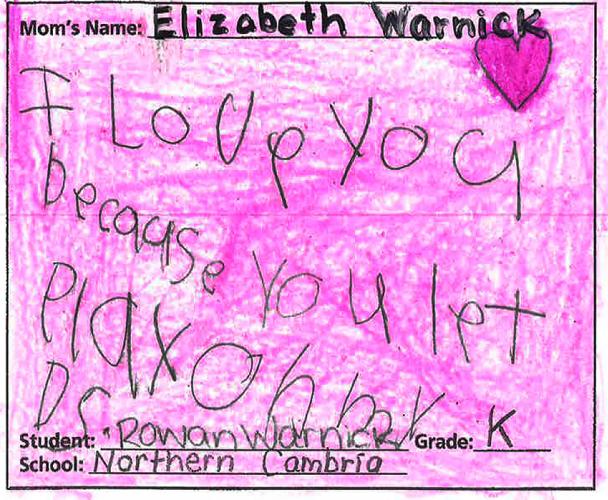 Mom's Name: Elizabeth Warnick
I Love you
because
you let
Play on my
DS
Student: Rowan Warnick Grade: K
School: Northern Cambria